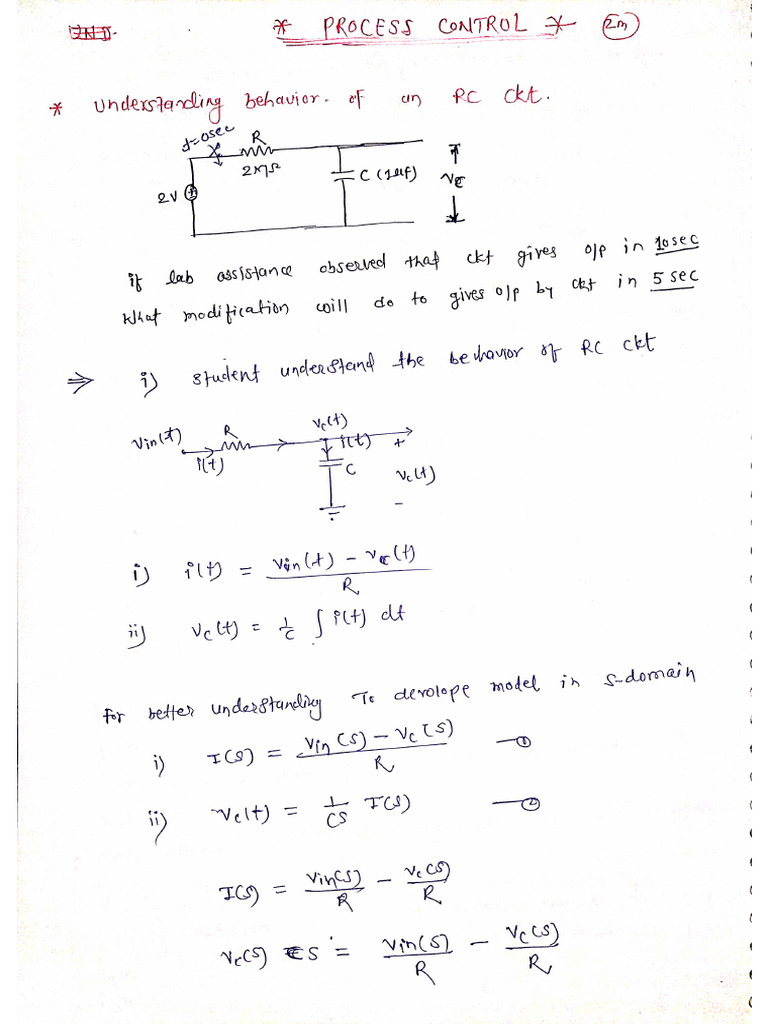 * PROCESS CONTROL * 2m
* Understanding behavior. of an RC ckt.
t=0sec
R
2K7Ω
C (1μf)
Vc
2V
if lab assistance observed that ckt gives o/p in 10sec
What modification will do to gives o/p by ckt in 5 sec
⇒ i) student understand the behavior of RC ckt
Vin(t) R Vc(t)
i(t) i(t) +
C Vc(t)
-
i) i(t) = Vin(t) - Vc(t) / R
ii) Vc(t) = 1/C ∫ i(t) dt
for better understanding To devolope model in s-domain
i) I(s) = Vin(s) - Vc(s) / R — ①
ii) Vc(t) = 1/CS I(s) — ②
I(s) = Vin(s)/R - Vc(s)/R
Vc(s) CS = Vin(s)/R - Vc(s)/R